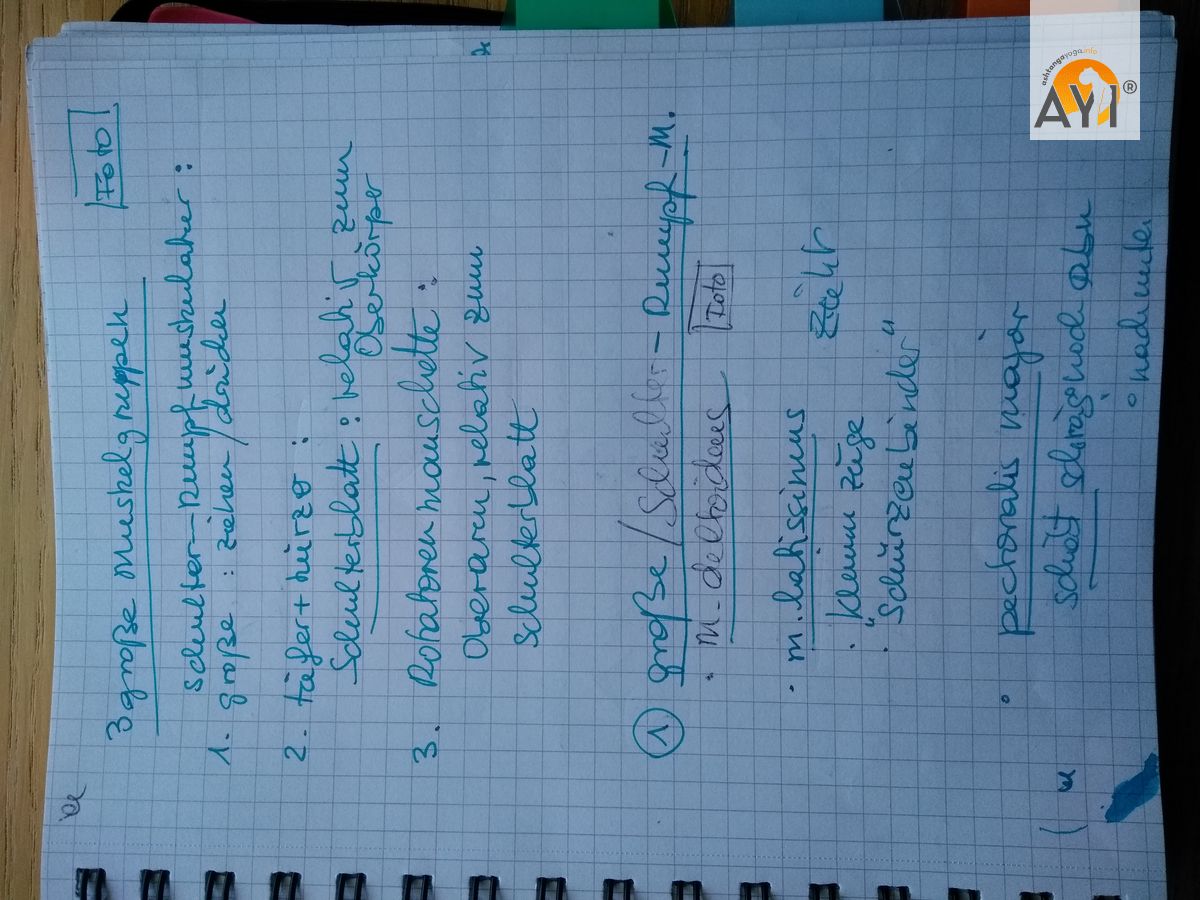 3 große Muskelgruppen
Foto
Schulter-Rumpfmuskulatur:
1. große: ziehen/drücken
2. tiefer + kürzer:
Schulterblatt: relativ zum
Oberkörper
3. Rotatorenmanschette:
Oberarm, relativ zum
Schulterblatt
1 große/Schulter-Rumpf-M.
• M. deltoideus
Foto
• m. latissimus
zieht
• Klimmzüge
• "Schürzenbinder"
• pectoralis major
schräg nach oben
• nach unten
ashtangayoga.info
AYI®